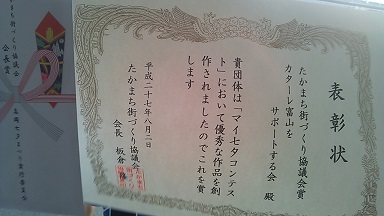 表彰状
たかまち街づくり協議会賞
カターレ富山を
サポートする会 殿
貴団体は「マイ七夕コンテス
ト」において優秀な作品を創
作されましたのでこれを賞
します
平成二十七年八月二日
たかまち街づくり協議会
会長 板倉
まち街づくり協議会
会長賞